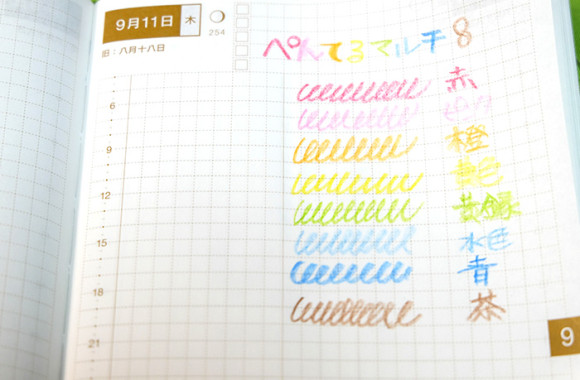 9月11日 木
254
旧:八月十八日
ぺんてるマルチ8
6
9
12
15
18
21
赤
橙
黄色
黄緑
水色
青
茶
9